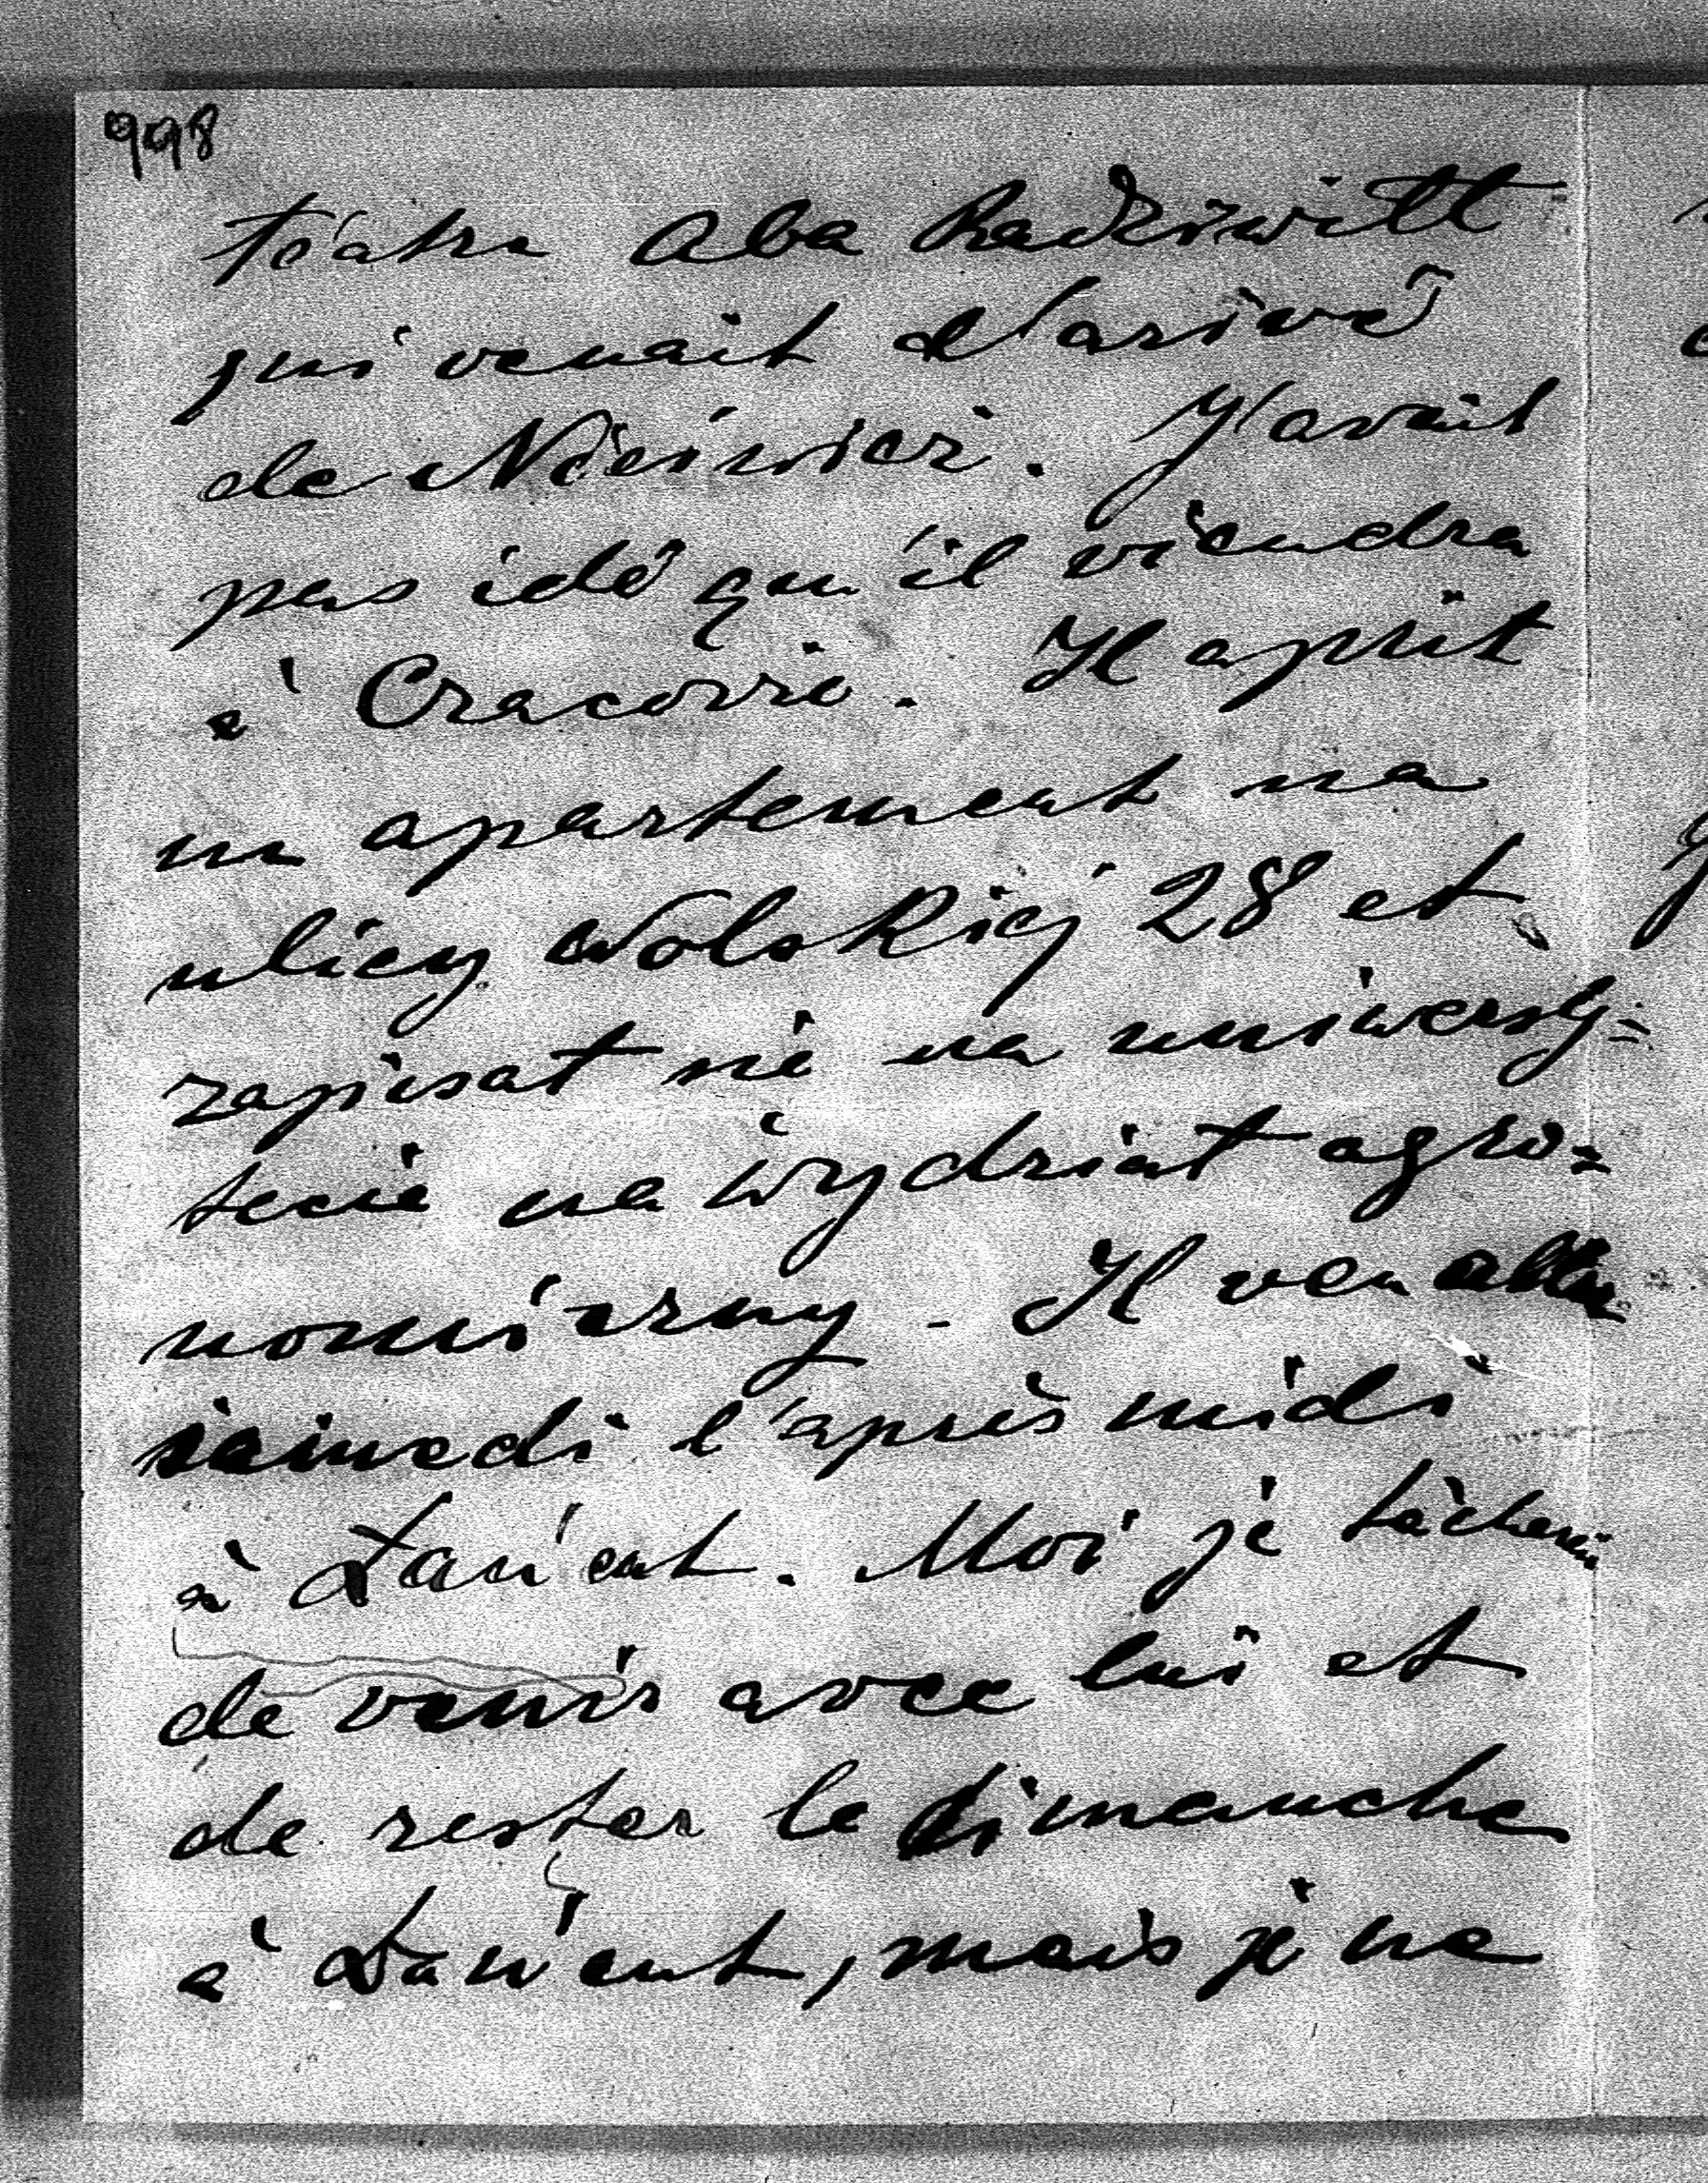 998
téatre Aba Radziwiłł
qui venait d'arivé
de Nieświez. J'avait
pas idé qu'il viendra
à Cracovie. Il a prit
un apartement na
ulicy Wolskiej 28 et
zapisał się na uniwersy=
tecie na wydział agro=
nomiczny. Il
samedi l'après midi
à Łańcut. Moi je tâcherai
de venir avec lui et
de rester le dimanche
à Łańcut, mais je ne